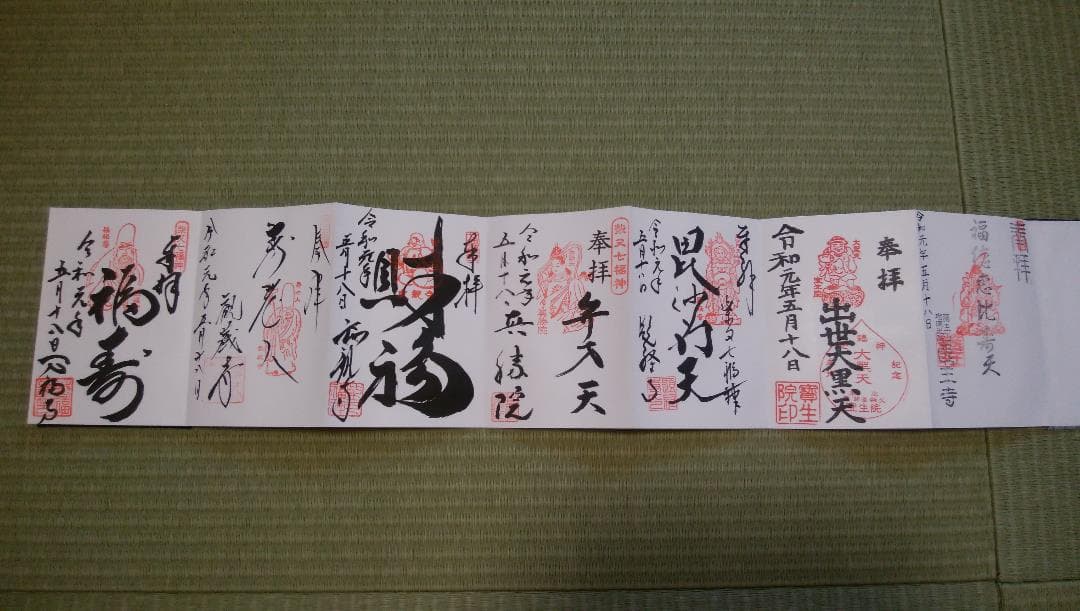 奉拝
福徳恵比寿天
令和元年五月十八日
医王寺
奉拝
出世大黒天
大聖天
記念
令和元年五月十八日
寳生院印
奉拝
柴又七福神
毘沙门天
令和元年
五月十八日
題経寺
柴又七福神
奉拝
弁天天
令和元年
五月十八日
真勝院
奉拝
令和元年
五月十八日
良観寺
奉拝
寿老人
令和元年五月十八日
観蔵寺
奉拝
福寿
令和元年
五月十八日
万福寺